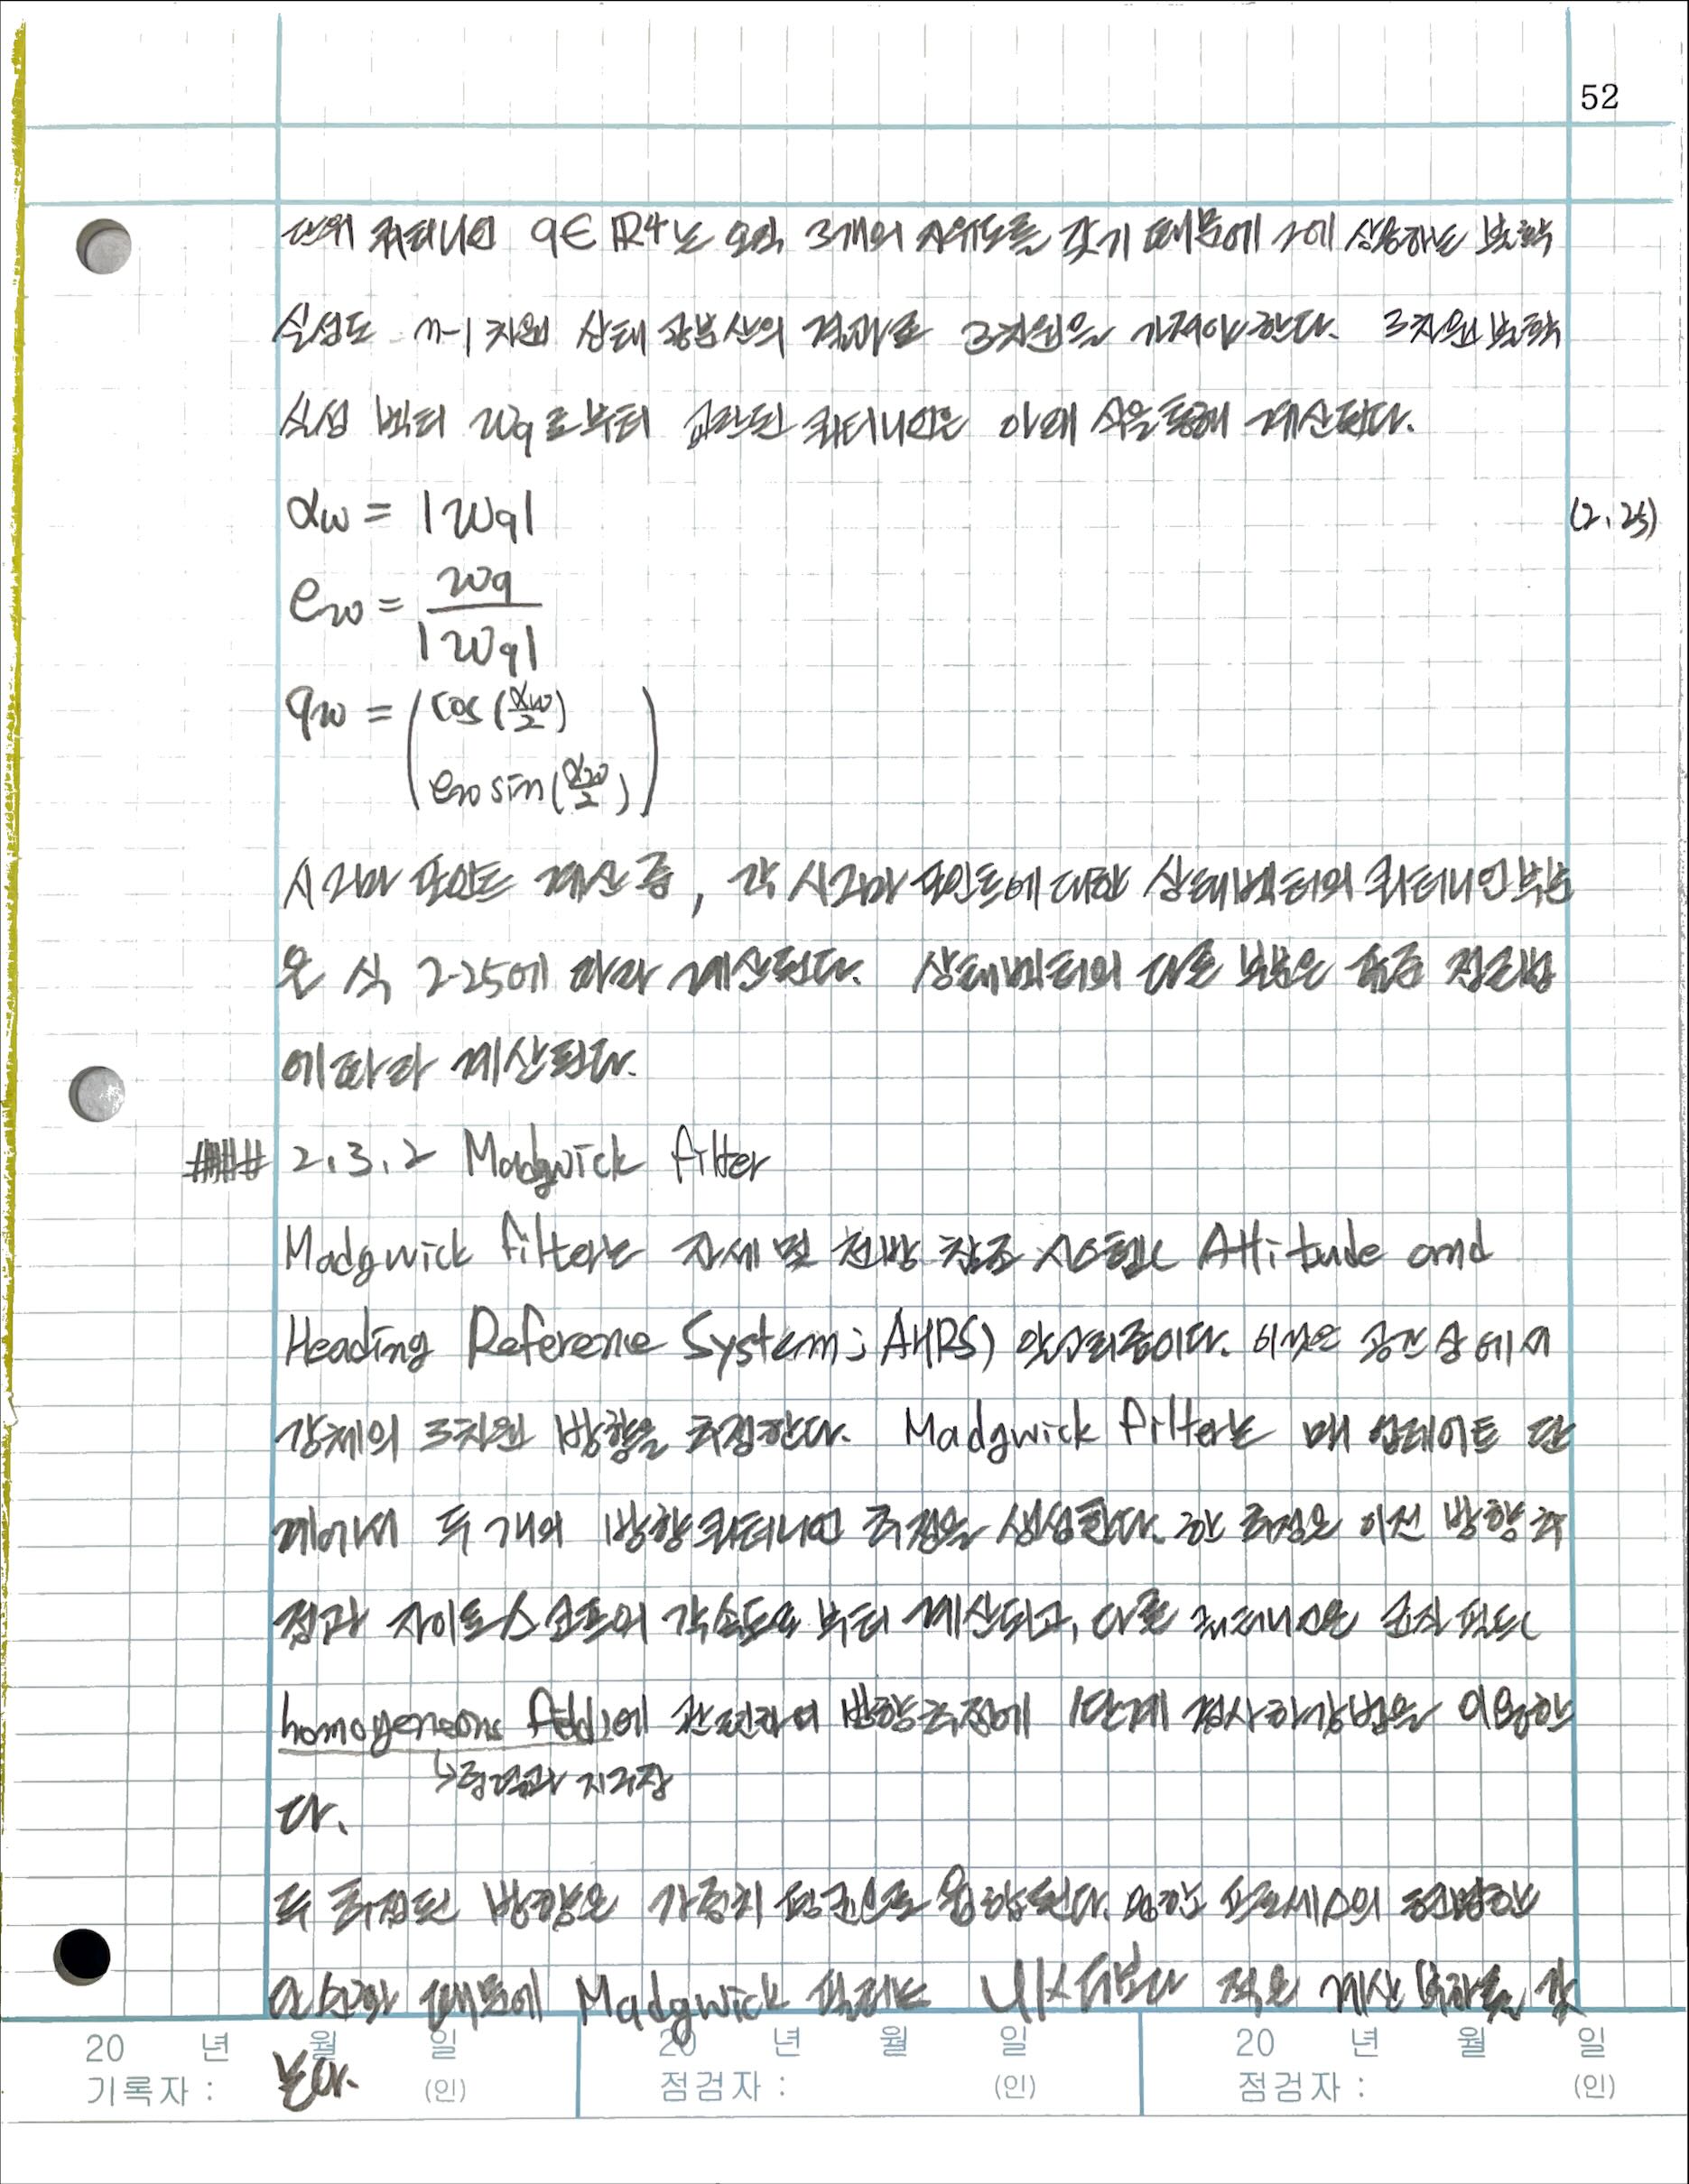 52
단위 쿼터니언 q∈ℝ4는 오직 3개의 자유도를 갖기 때문에 그에 상응하는 불확
실성도 n-1차원 상태 공분산의 결과로 3차원을 가져야 한다. 3차원 불확
실성 벡터 wq로부터 교란된 쿼터니언은 아래 식을 통해 계산된다.
αw = |wq| (2.25)
ew = wq / |wq|
qw = ( cos(αw/2)
ew sin(αw/2) )
시그마 포인트 계산 중, 각 시그마 포인트에 대한 상태벡터의 쿼터니언 부분
은 식 2-25에 따라 계산된다. 상태벡터의 다른 부분은 표준 정리법
에 따라 계산된다.
#### 2.3.2 Madgwick filter
Madgwick filter는 자세 및 전방 참조 시스템( Attitude and
Heading Reference System; AHRS) 알고리즘이다. 이것은 공간 상에서
강체의 3차원 방향을 추정한다. Madgwick filter는 매 업데이트 단
계에서 두 개의 방향 쿼터니언 추정을 생성한다. 한 추정은 이전 방향 추
정과 자이로스코프의 각속도로부터 계산되고, 다른 쿼터니언은 균질 필드(
homogeneous field)에 관련하여 방향추정에 1단계 경사하강법을 이용한
↳중력과 지자장
다.
두 추정된 방향은 가중치 평균으로 융합된다. 융합 프로세스의 현명한
단순화 때문에 Madgwick 필터는 UKF보다 적은 계산 부하를 갖
는다.
20 년 월 일 20 년 월 일 20 년 월 일
기록자 : (인) 점검자 : (인) 점검자 : (인)